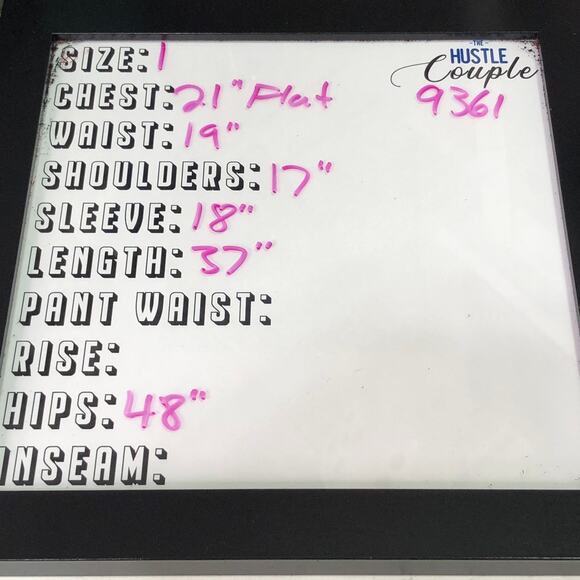 SIZE: 1
-THE-
HUSTLE
Couple
CHEST: 21" Flat
9361
WAIST: 19"
SHOULDERS: 17"
SLEEVE: 18"
LENGTH: 37"
PANT WAIST:
RISE:
HIPS: 48"
INSEAM: